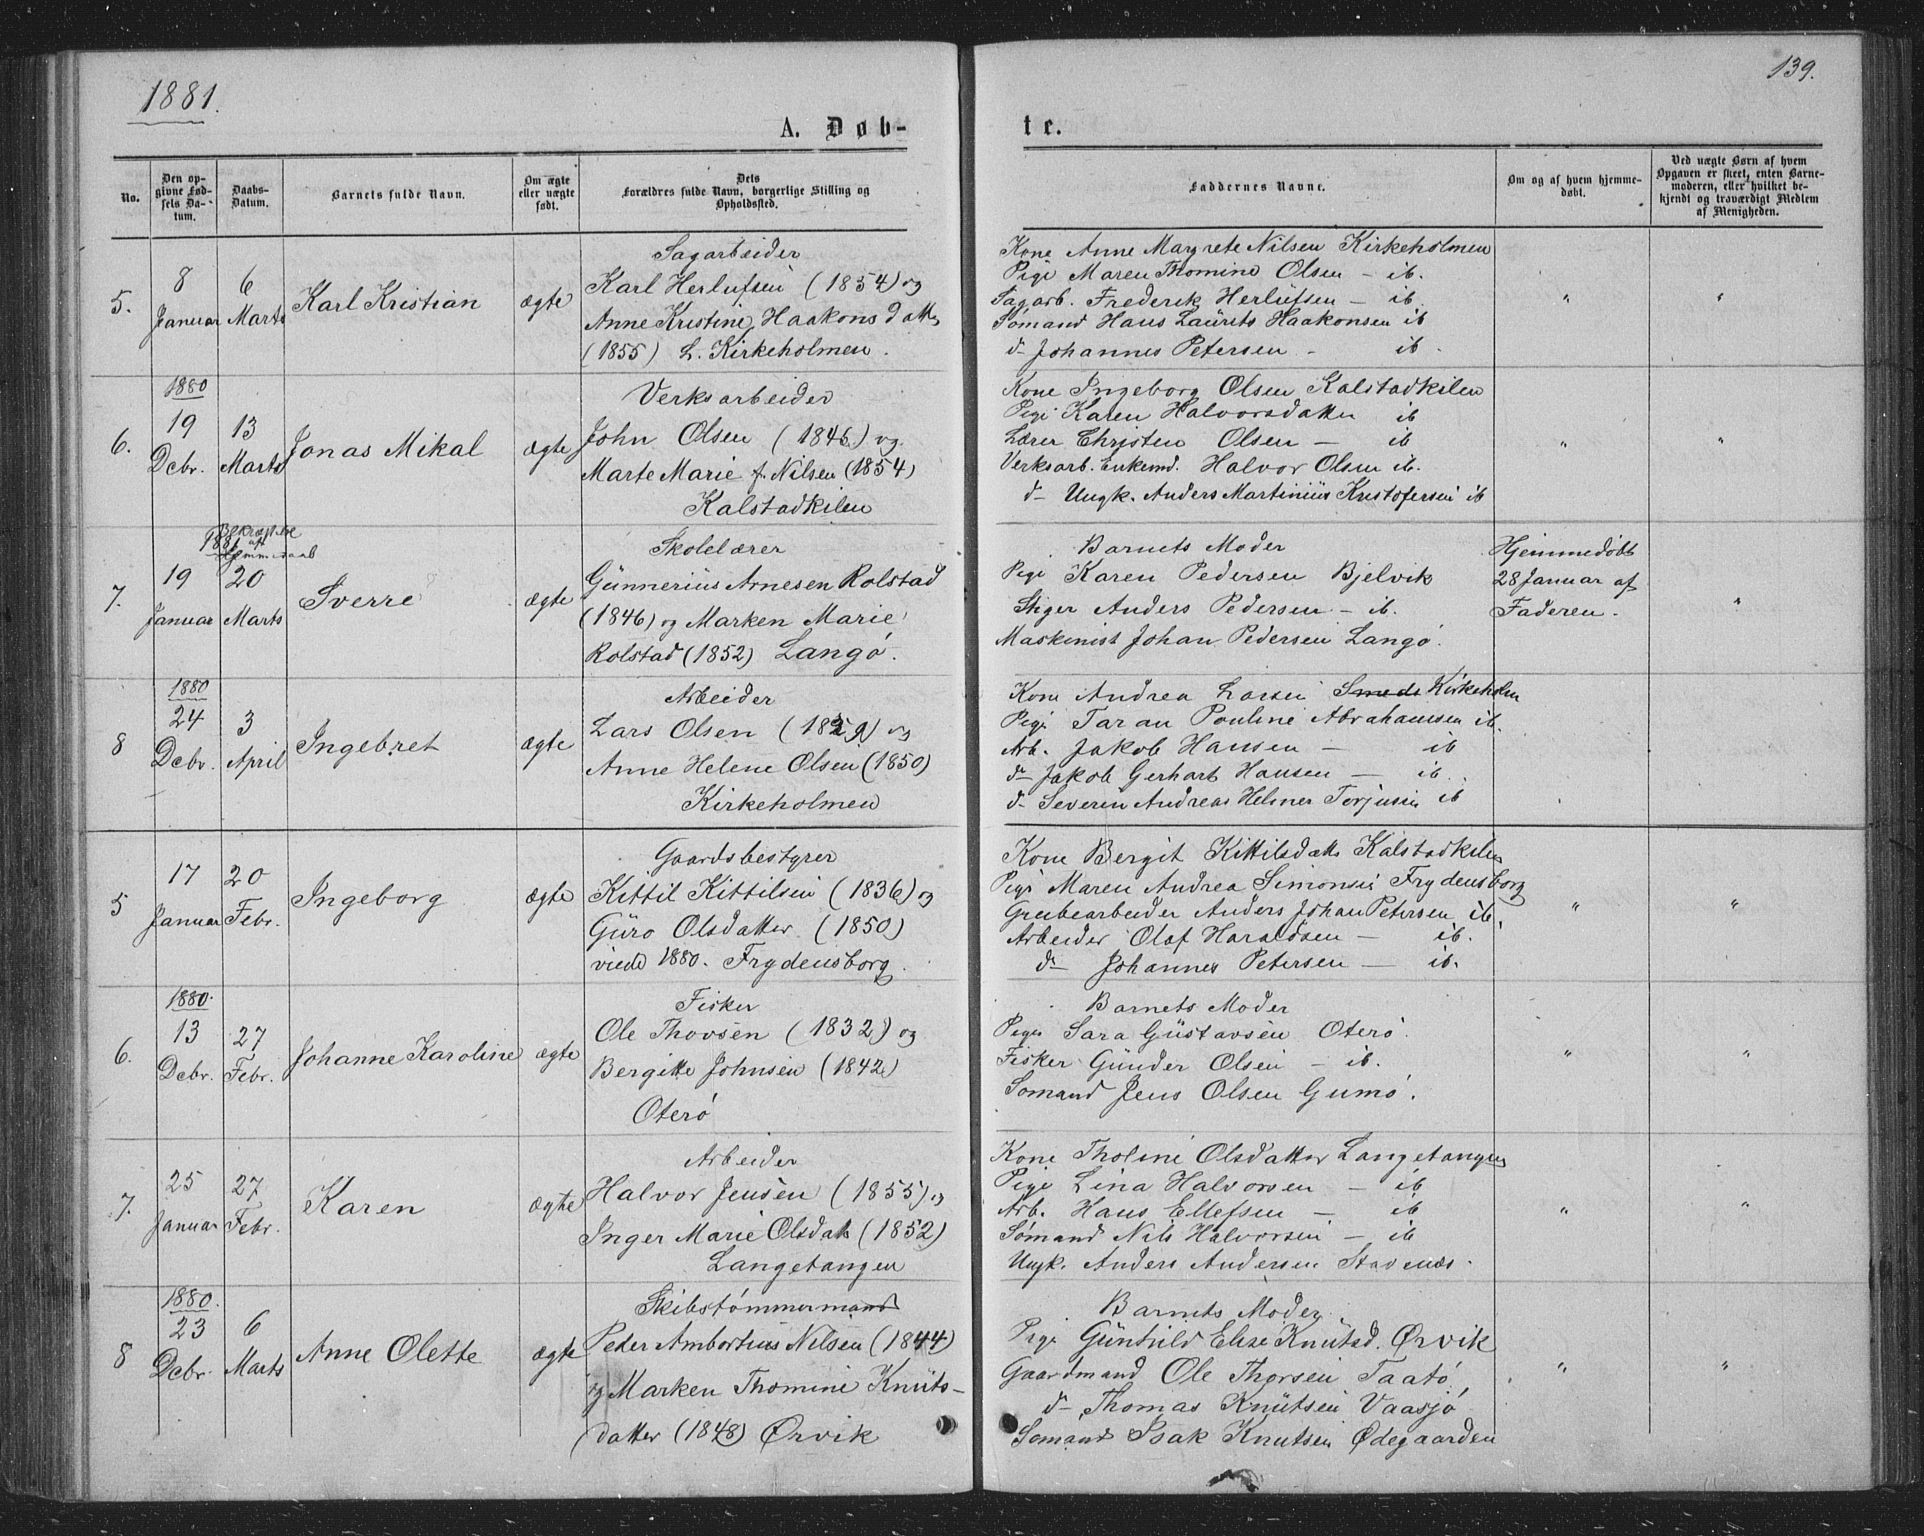 1881.
139.
A. Døb-
te.
No.
Den op-
givne Fød-
sels Da-
tum.
Daabs-
Datum.
Barnets fulde Navn.
Om ægte
eller uægte
født.
Dets
Forældres fulde Navn, borgerlige Stilling og
Opholdssted.
Faddernes Navne.
Om og af hvem hjemme-
døbt.
Ved uægte Børn af hvem
Opgaven er skeet, enten Barne-
moderen, eller hvilket be-
kjendt og troværdigt Medlem
af Menigheden.
5.
8
Januar
6
Marts
Karl Kristian
ægte
Sagarbeider
Karl Herlufsen (1854) og
Anne Kristine Haakonsdatter
(1855) L. Kirkeholmen.
Kone Anne Margrete Nilsen Kirkeholmen
Pige Maren Thomine Olsen - ib.
Sagarb. Frederik Herlufsen - ib
Sømand Hans Laurits Haakonsen ib
d- Johannes Petersen - ib.
"
"
6.
1880
19
Dcbr.
13
Marts
Jonas Mikal
ægte
Verksarbeider
John Olsen (1845) og
Marte Marie f. Nilsen (1854)
Kalstadkilen
Kone Ingeborg Olsen Kalstadkilen
Pige Karen Halvorsdatter ib
Lærer Christen Olsen - ib
Verksarb. Enkemd. Halvor Olsen ib.
d- Ungk. Anders Martinius Kristofersen ib
"
"
7.
1881
19
Januar
20
Marts
Sverre
ægte
Skolelærer
Gunnerius Arnesen Rolstad
(1846) og Marken Marie
Rolstad (1852) Langø.
Barnets Moder
Pige Karen Pedersen Bjelvik
Stiger Anders Pedersen - ib.
Maskinist Johan Pedersen Langø.
Hjemmedøbt
28 Januar af
Faderen.
"
8
1880
24
Dcbr.
3
April
Ingebret
ægte
Arbeider
Lars Olsen og
Anne Helene Olsen (1850)
Kirkeholmen
Kone Andrea Larsen Smeds Kirkeholm
Pige Taran Pouline Abrahamsen ib.
Arb. Jakob Hansen - ib
d- Jakob Gerhart Hansen - ib.
d- Severin Andreas Helmer Torjusen ib
5
17
Januar
20
Febr.
Ingeborg
ægte
Gaardsbestyrer
Kittil Kittilsen (1836) og
Guro Olsdatter (1850)
viede 1880. Frydensborg.
Kone Bergit Kittilsdatt. Kalstadkilen
Pige Maren Andrea Simonsen Frydensborg
Grubearbeider Anders Johan Petersen ib.
Arbeider Olaf Haraldsen - ib.
d- Johannes Petersen - ib.
"
"
6.
1880.
13
Dcbr.
27
Febr.
Johanne Karoline
ægte
Fisker
Ole Thovsen (1832) og
Bergitte Johnsen (1842)
Oterø
Barnets Moder
Pige Sara Gustavsen Oterø.
Fisker Gunder Olsen - ib.
Sømand Jens Olsen Gumø.
"
"
7.
25
Januar
27
Febr.
Karen
ægte
Arbeider
Halvor Jensen (1855) og
Inger Marie Olsdatt. (1852)
Langetangen
Kone Tholine Olsdatter Langetangen
Pige Lina Halvorsen - ib
Arb. Hans Ellefsen - ib
Sømand Nils Halvorsen - ib
Ungk. Anders Andersen Stavenæs.
"
"
8
1880.
23
Dcbr.
6
Marts
Anne Olette
ægte
Skibstømmermand
Peder Ambortius Nilsen (1844)
og Marken Thomine Knuts-
datter (1848) Ørvik
Barnets Moder
Pige Gunhild Elise Knutsd. Ørvik
Gaardmand Ole Thorsen Taatø
d- Thomas Knutsen Vaasjø
Sømand Isak Knutsen Ødegaarden
"
"